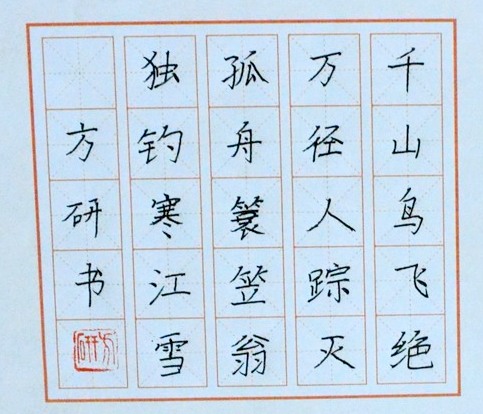 千山鸟飞绝
万径人踪灭
孤舟蓑笠翁
独钓寒江雪
方研书
方研